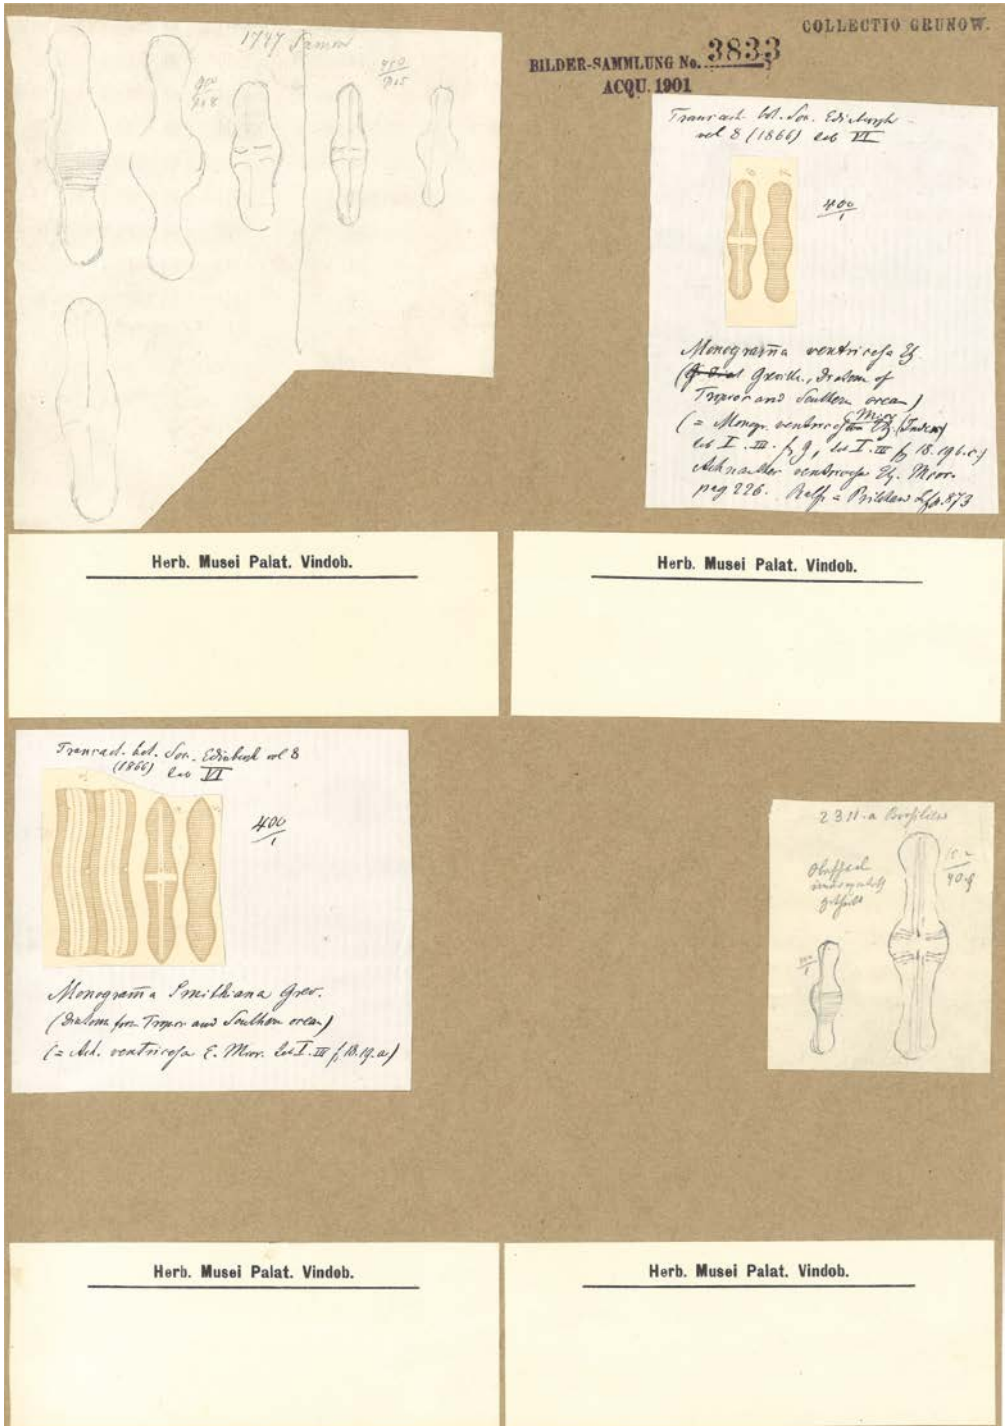 COLLECTIO GRUNOW.
BILDER-SAMMLUNG No. 3833
ACQU. 1901
1747 Samoa
Transact. bot. Soc. Edinburgh
vol 8 (1866) tab VI
6 7
400/1
Monogram̄a ventricosa
Greville, Diatom of
Tropic and Southern ocean)
(= Monogr. ventricosa (Index)
tab I. III. f. 9, tab I. III f. 18. 19 b. c.)
Achnanthes ventricosa Eh. Micr.
pag 226. Ralfs = Pritchard p. 873
Herb. Musei Palat. Vindob.
Herb. Musei Palat. Vindob.
Transact. bot. Soc. Edinburgh vol 8
(1866) tab VI
400/1
Monogram̄a Smithiana Grev.
(Diatom from Tropic and Southern ocean)
(= Ach. ventricosa E. Micr. tab I. III f. 18. 19. a)
2311-a Brasilien
Herb. Musei Palat. Vindob.
Herb. Musei Palat. Vindob.